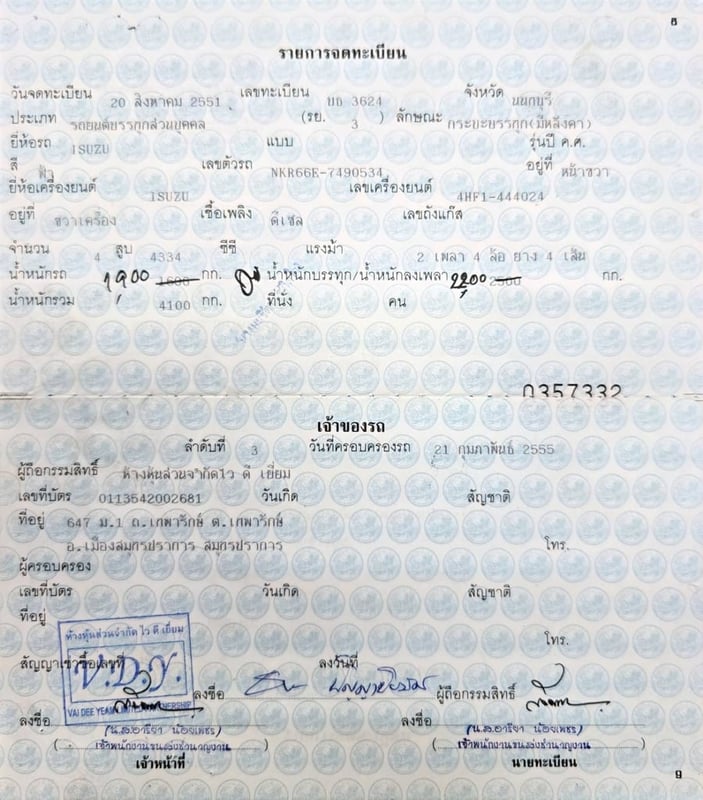 ๕
รายการจดทะเบียน
วันจดทะเบียน 20 สิงหาคม 2551 เลขทะเบียน บถ 3624 จังหวัด นนทบุรี
ประเภท รถยนต์บรรทุกส่วนบุคคล (รย. 3 ) ลักษณะ กระบะบรรทุก(มีหลังคา)
ยี่ห้อรถ ISUZU แบบ รุ่นปี ค.ศ.
สี ฟ้า เลขตัวรถ NKR66E-7490534 อยู่ที่ หน้าขวา
ยี่ห้อเครื่องยนต์ ISUZU เลขเครื่องยนต์ 4HF1-444024
อยู่ที่ ขวาเครื่อง เชื้อเพลิง ดีเซล เลขถังแก๊ส
จำนวน 4 สูบ 4334 ซีซี แรงม้า 2 เพลา 4 ล้อ ยาง 4 เส้น
น้ำหนักรถ 1900 1600 กก. น้ำหนักบรรทุก/น้ำหนักลงเพลา 2200 2500 กก.
น้ำหนักรวม 4100 กก. ที่นั่ง คน
0357332
เจ้าของรถ
ลำดับที่ 3 วันที่ครอบครองรถ 21 กุมภาพันธ์ 2555
ผู้ถือกรรมสิทธิ์ ห้างหุ้นส่วนจำกัดไว ดี เยี่ยม
เลขที่บัตร 0113542002681 วันเกิด สัญชาติ
ที่อยู่ 647 ม.1 ถ.เทพารักษ์ ต.เทพารักษ์
อ.เมืองสมุทรปราการ สมุทรปราการ โทร.
ผู้ครอบครอง
เลขที่บัตร วันเกิด สัญชาติ
ที่อยู่
ห้างหุ้นส่วนจำกัด ไว ดี เยี่ยม
โทร.
สัญญาเช่าซื้อเลขที่ ลงวันที่
V.D.Y.
ลงชื่อ ผู้ถือกรรมสิทธิ์
VAI DEE YEAM LIMITED PARTNERSHIP
ลงชื่อ ลงชื่อ
(น.ส.อาริยา น้อยเพชร) (น.ส.อาริยา น้อยเพชร)
( เจ้าพนักงานขนส่งชำนาญงาน ) ( เจ้าพนักงานขนส่งชำนาญงาน )
เจ้าหน้าที่ นายทะเบียน
๑